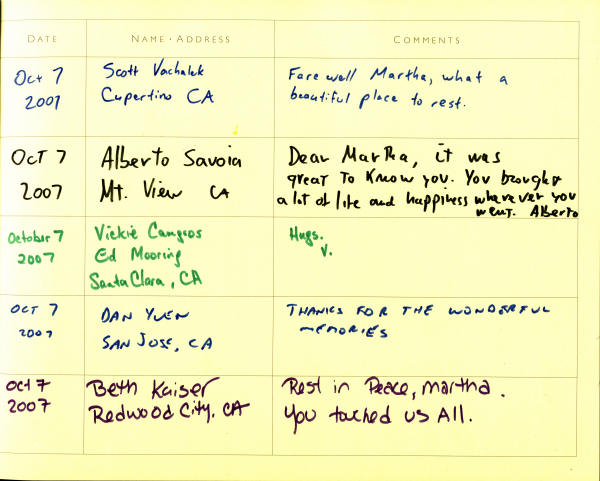 DATE
NAME · ADDRESS
COMMENTS
Oct 7
2007
Scott Vachalek
Cupertino CA
Farewell Martha, what a
beautiful place to rest.
OCT 7
2007
Alberto Savoia
Mt. View CA
Dear Martha, it was
great to know you. You brought
a lot of life and happiness wherever you
went. Alberto
October 7
2007
Vickie
Ed Mooring
Santa Clara, CA
Hugs.
V.
OCT 7
2007
DAN YUEN
SAN JOSE, CA
THANKS FOR THE WONDERFUL
MEMORIES
Oct 7
2007
Beth Kaiser
Redwood City, CA
Rest in Peace, Martha.
You touched us All.